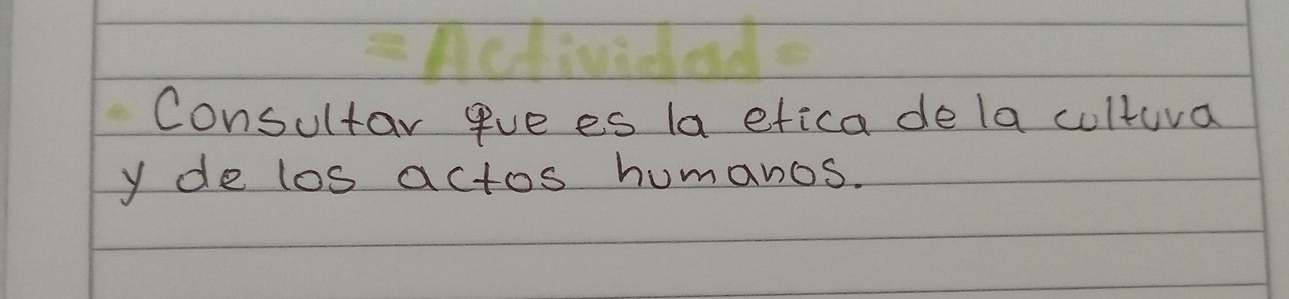 = Actividad =
• Consultar que es la etica de la cultura
y de los actos humanos.